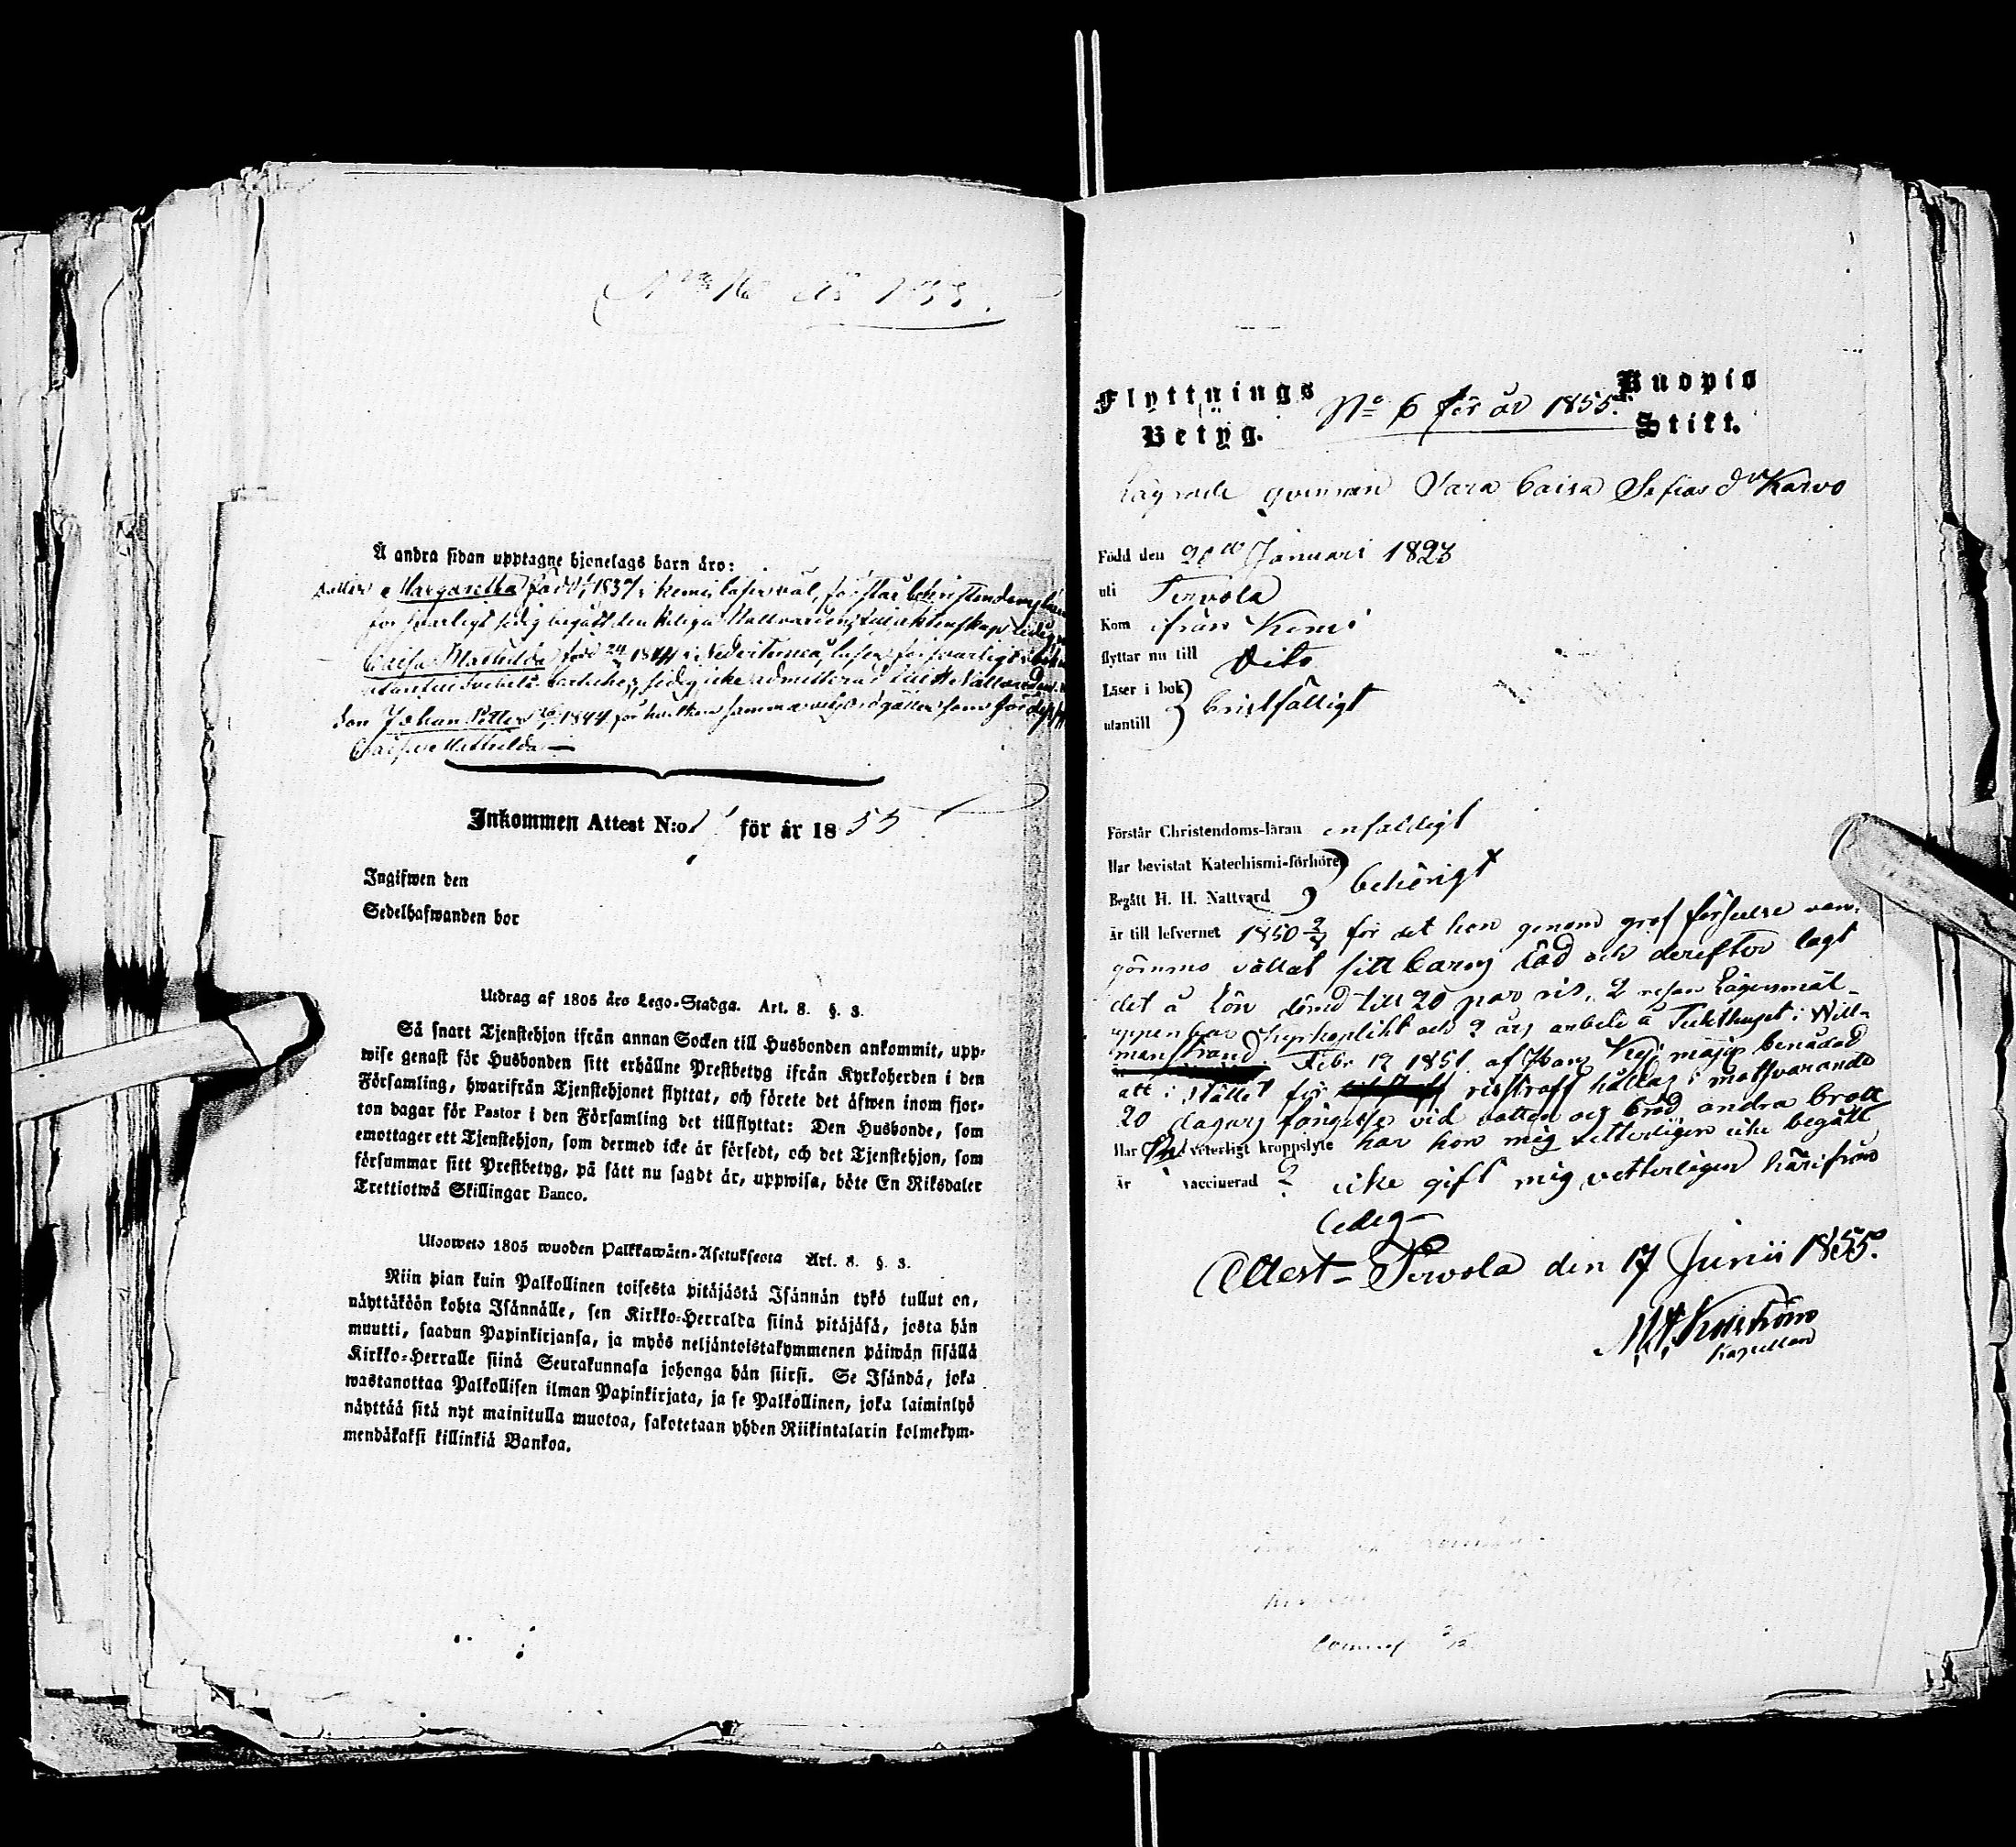 Å andra sidan upptagne hjonelags barn äro:
Margaretha född 1837 i Kemi, läser väl, förstår Christendomsläran
försvarligt flitigt begått den Heliga Nattvarden, till äktenskap ledig
Caisa Mathilda född 24 1841 i Nedertorneå, läser försvarligt i bok
utantill icke admitterad till H. Nattvarden
Johan Petter 1844 för hvilken samma vitsord gäller som för
Caisa Mathilda
Inkommen Attest N:o för år 1855
Ingifwen den
Sedelhafwanden bor
Utdrag af 1805 års Lego-Stadga. Art. 8. §. 3.
Så snart Tjenstehjon ifrån annan Socken till Husbonden ankommit, upp-
wise genast för Husbonden sitt erhållne Prestbetyg ifrån Kyrkoherden i den
Församling, hwarifrån Tjenstehjonet flyttat, och förete det äfwen inom fjor-
ton dagar för Pastor i den Församling det tillflyttat: Den Husbonde, som
emottager ett Tjenstehjon, som dermed icke är försedt, och det Tjenstehjon, som
försummar sitt Prestbetyg, på sätt nu sagdt är, uppwisa, böte En Riksdaler
Trettiotwå Skillingar Banco.
Ulosweto 1805 wuoden Palkkawäen-Asetuksesta Art. 8. §. 3.
Niin pian kuin Palkollinen toisesta pitäjästä Isännän tykö tullut on,
näyttäköön kohta Isännälle, sen Kirkko-Herralda siinä pitäjäsä, josta hän
muutti, saadun Papinkirjansa, ja myös neljäntoistakymmenen päiwän sisällä
Kirkko-Herralle siinä Seurakunnasa johonga hän siirsi. Se Isändä, joka
wastanottaa Palkollisen ilman Papinkirjata, ja se Palkollinen, joka laiminlyö
näyttää sitä nyt mainitulla muotoa, sakotetaan yhden Riikintalarin kolmekym-
mendäkaksi killinkiä Bankoa.
Flyttnings Betyg. No 6 för år 1855. Kuopio Stift.
Lägrade qvinnan Sara Caisa Sefiasdr Karvo
Född den Januari 1823
uti Tervola
Kom ifrån Kemi
flyttar nu till Dito
Läser i bok
utantill bristfälligt
Förstår Christendoms-läran enfaldigt
Har bevistat Katechismi-förhören
Begått H. H. Nattvard behörigt
är till lefvernet 1850 för det hon genom grof förseelse
vållat sitt barns död och derefter lagt
det å lön dömd till 20 par ris, 2 resan lägersmål
uppenbar kyrkoplikt och 2 års arbete å Tukthuset i Will-
manstrand. Febr 17 1851 af Hans Kejs. majj. benådad
att i stället för risstraff hållas i motsvarande
20 dagars fängelse vid vatten och bröd, andra brott
Har veterligt kroppslyte har hon mig vetterligen icke begått
är vaccinerad ? icke gift mig vetterligen härifrån
ledig
Attest Tervola den 17 Junii 1855.
Kapellan